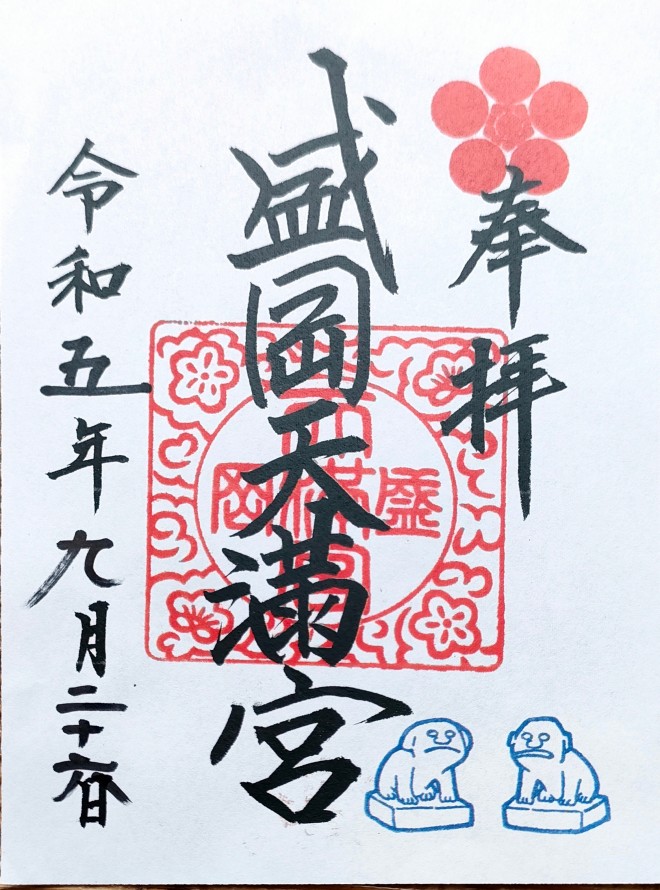 奉拝
盛岡天満宮
盛岡天満宮
令和五年九月二十六日